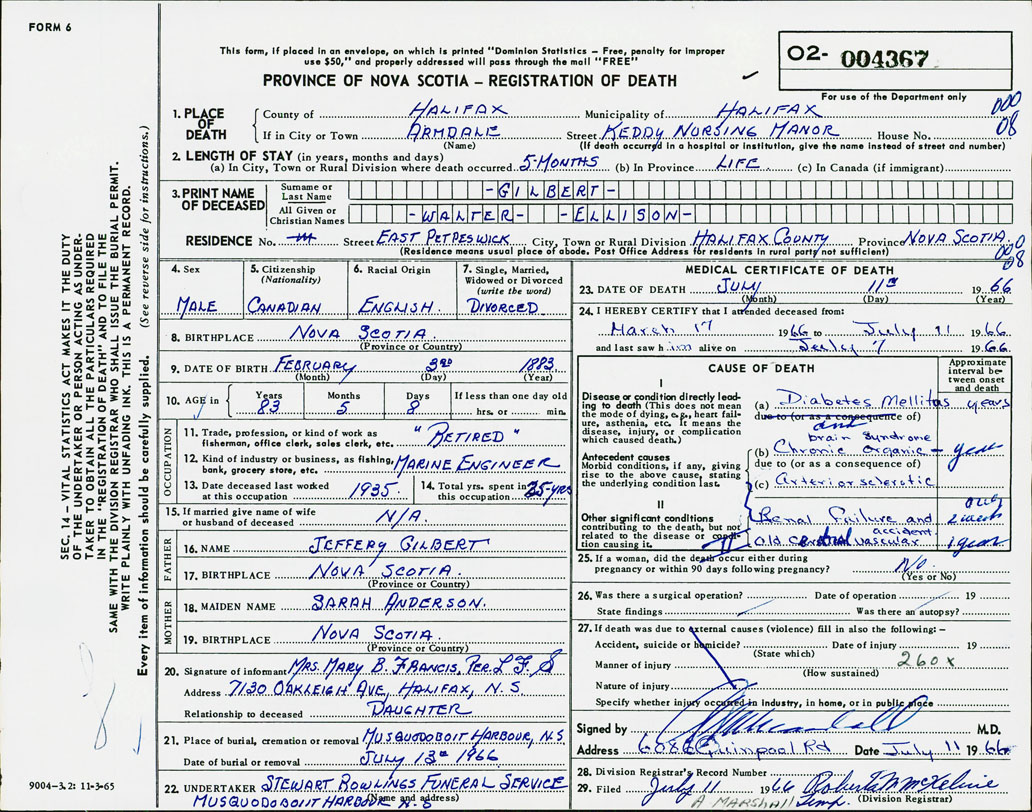 FORM 6
This form, if placed in an envelope, on which is printed "Dominion Statistics – Free, penalty for improper
use $50," and properly addressed will pass through the mail "FREE"
PROVINCE OF NOVA SCOTIA – REGISTRATION OF DEATH
02- 004367
For use of the Department only
000
08
1. PLACE OF DEATH
County of HALIFAX Municipality of HALIFAX
If in City or Town ARMDALE Street KEDDY NURSING MANOR House No.
(Name) (If death occurred in a hospital or institution, give the name instead of street and number)
2. LENGTH OF STAY (in years, months and days)
(a) In City, Town or Rural Division where death occurred 5-MONTHS (b) In Province LIFE (c) In Canada (if immigrant)
3. PRINT NAME OF DECEASED
Surname or Last Name -GILBERT-
All Given or Christian Names -WALTER- -ELLISON-
RESIDENCE No. Street EAST PETPESWICK City, Town or Rural Division HALIFAX COUNTY Province NOVA SCOTIA
(Residence means usual place of abode. Post Office Address for residents in rural parts not sufficient)
08
4. Sex
MALE
5. Citizenship
(Nationality)
CANADIAN
6. Racial Origin
ENGLISH.
7. Single, Married,
Widowed or Divorced
(write the word)
DIVORCED
8. BIRTHPLACE NOVA SCOTIA.
(Province or Country)
9. DATE OF BIRTH FEBRUARY 3RD 1883
(Month) (Day) (Year)
10. AGE in
Years Months Days If less than one day old
83 5 8 hrs. or min.
OCCUPATION
11. Trade, profession, or kind of work as
fisherman, office clerk, sales clerk, etc. "RETIRED"
12. Kind of industry or business, as fishing,
bank, grocery store, etc. MARINE ENGINEER
13. Date deceased last worked
at this occupation 1935.
14. Total yrs. spent in
this occupation 35-YRS
15. If married give name of wife
or husband of deceased N/A.
FATHER
16. NAME JEFFERY GILBERT
17. BIRTHPLACE NOVA SCOTIA.
(Province or Country)
MOTHER
18. MAIDEN NAME SARAH ANDERSON.
19. BIRTHPLACE NOVA SCOTIA.
(Province or Country)
20. Signature of informant MRS. MARY B. FRANCIS, PER. L F S
Address 7130 OAKLEIGH AVE, HALIFAX, N.S.
Relationship to deceased DAUGHTER
21. Place of burial, cremation or removal MUSQUODOBOIT HARBOUR, N.S
Date of burial or removal JULY 13th 1966
22. UNDERTAKER STEWART ROWLINGS FUNERAL SERVICE
(Name and address)
MUSQUODOBOIT HARBOUR N.S
MEDICAL CERTIFICATE OF DEATH
23. DATE OF DEATH JULY 11th 1966
(Month) (Day) (Year)
24. I HEREBY CERTIFY that I attended deceased from:
March 17 1966 to July 11 1966
and last saw him alive on July 7 1966
CAUSE OF DEATH
Approximate
interval be-
tween onset
and death
I
Disease or condition directly lead-
ing to death (This does not mean
the mode of dying, e.g., heart fail-
ure, asthenia, etc. It means the
disease, injury, or complication
which caused death.)
(a) Diabetes Mellitas years
due to (or as a consequence of)
and
brain syndrome
Antecedent causes
Morbid conditions, if any, giving
rise to the above cause, stating
the underlying condition last.
(b) Chronic Organic – year
due to (or as a consequence of)
(c) Arteriosclerotic
II
Other significant conditions
contributing to the death, but not
related to the disease or condi-
tion causing it.
Renal Failure and 2 weeks
accident
old cerebral vascular 1 year
25. If a woman, did the death occur either during
pregnancy or within 90 days following pregnancy? No.
(Yes or No)
26. Was there a surgical operation? Date of operation 19
State findings Was there an autopsy?
27. If death was due to external causes (violence) fill in also the following:–
Accident, suicide or homicide? Date of injury 19
(State which)
260x
Manner of injury
(How sustained)
Nature of injury
Specify whether injury occurred in industry, in home, or in public place
Signed by M.D.
Address 6086 Quinpool Rd Date July 11 1966
28. Division Registrar's Record Number
29. Filed July 11 1966 Robert M McKelvie
(Division Registrar)
A MARSHALL
SEC. 14 – VITAL STATISTICS ACT MAKES IT THE DUTY
OF THE UNDERTAKER OR PERSON ACTING AS UNDER-
TAKER TO OBTAIN ALL THE PARTICULARS REQUIRED
IN THE "REGISTRATION OF DEATH" AND TO FILE THE
SAME WITH THE DIVISION REGISTRAR WHO SHALL ISSUE THE BURIAL PERMIT.
WRITE PLAINLY WITH UNFADING INK. THIS IS A PERMANENT RECORD.
Every item of information should be carefully supplied. (See reverse side for instructions.)
9004-3.2: 11-3-65